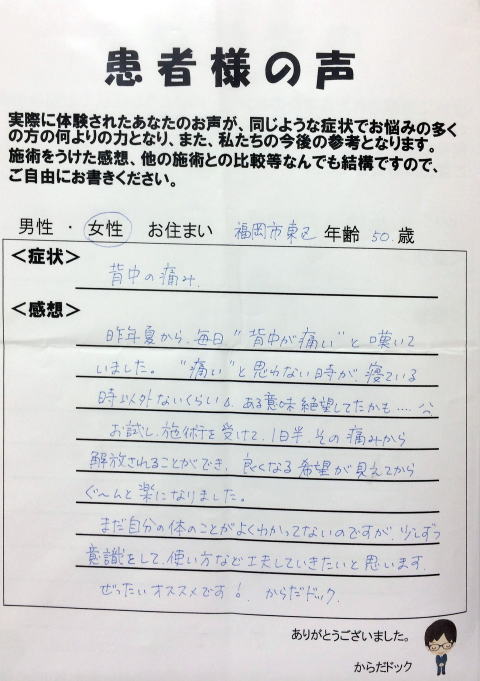 患者様の声
実際に体験されたあなたのお声が、同じような症状でお悩みの多く
の方の何よりの力となり、また、私たちの今後の参考となります。
施術をうけた感想、他の施術との比較等なんでも結構ですので、
ご自由にお書きください。
男性 ・ 女性 お住まい 福岡市東区 年齢 50 歳
<症状>
背中の痛み.
<感想>
昨年夏から、毎日"背中が痛い"と嘆いて
いました。 "痛い"と思わない時が、寝ている
時以外ないくらい、ある意味絶望してたかも….
お試し施術を受けて、1日半、その痛みから
解放されることができ、良くなる希望が見えてから
ぐ〜んと楽になりました。
まだ自分の体のことがよくわかってないのですが、少しずつ
意識をして、使い方など工夫していきたいと思います.
ぜったいオススメです! からだドック.
ありがとうございました。
からだドック